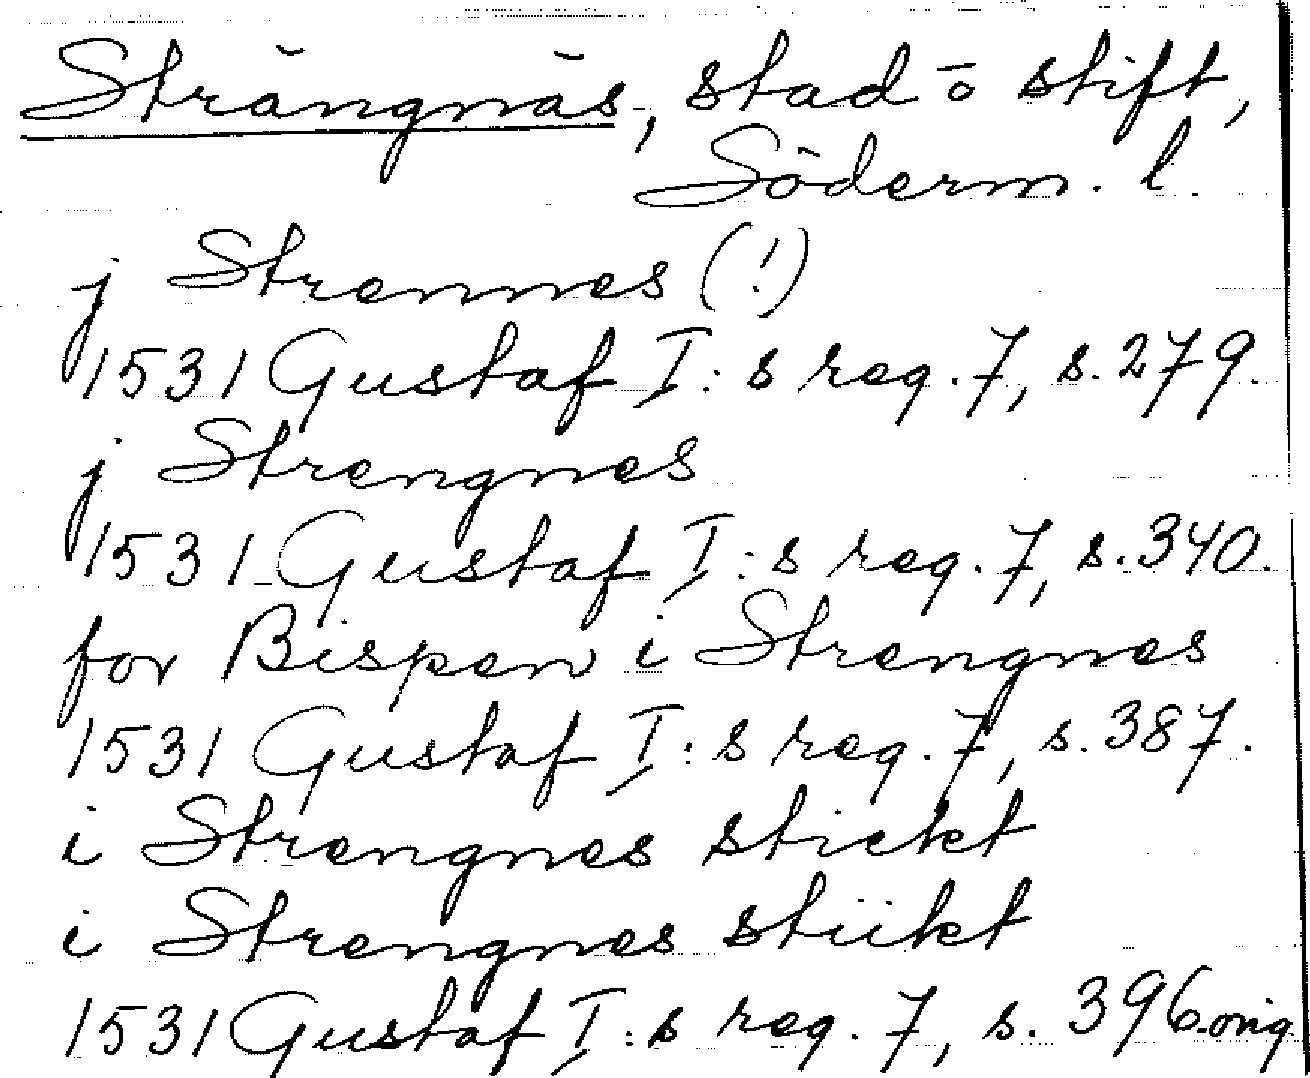 Strängnäs, stad o stift,
Söderm. l.
j Strennes (!)
1531 Gustaf I:s reg. 7, s. 279.
j Strengnes
1531 Gustaf I:s reg. 7, s. 340.
for Bispen i Strengnes
1531 Gustaf I:s reg. 7, s. 387.
i Strengnes stickt
i Strengnes stiikt
1531 Gustaf I:s reg. 7, s. 396. orig